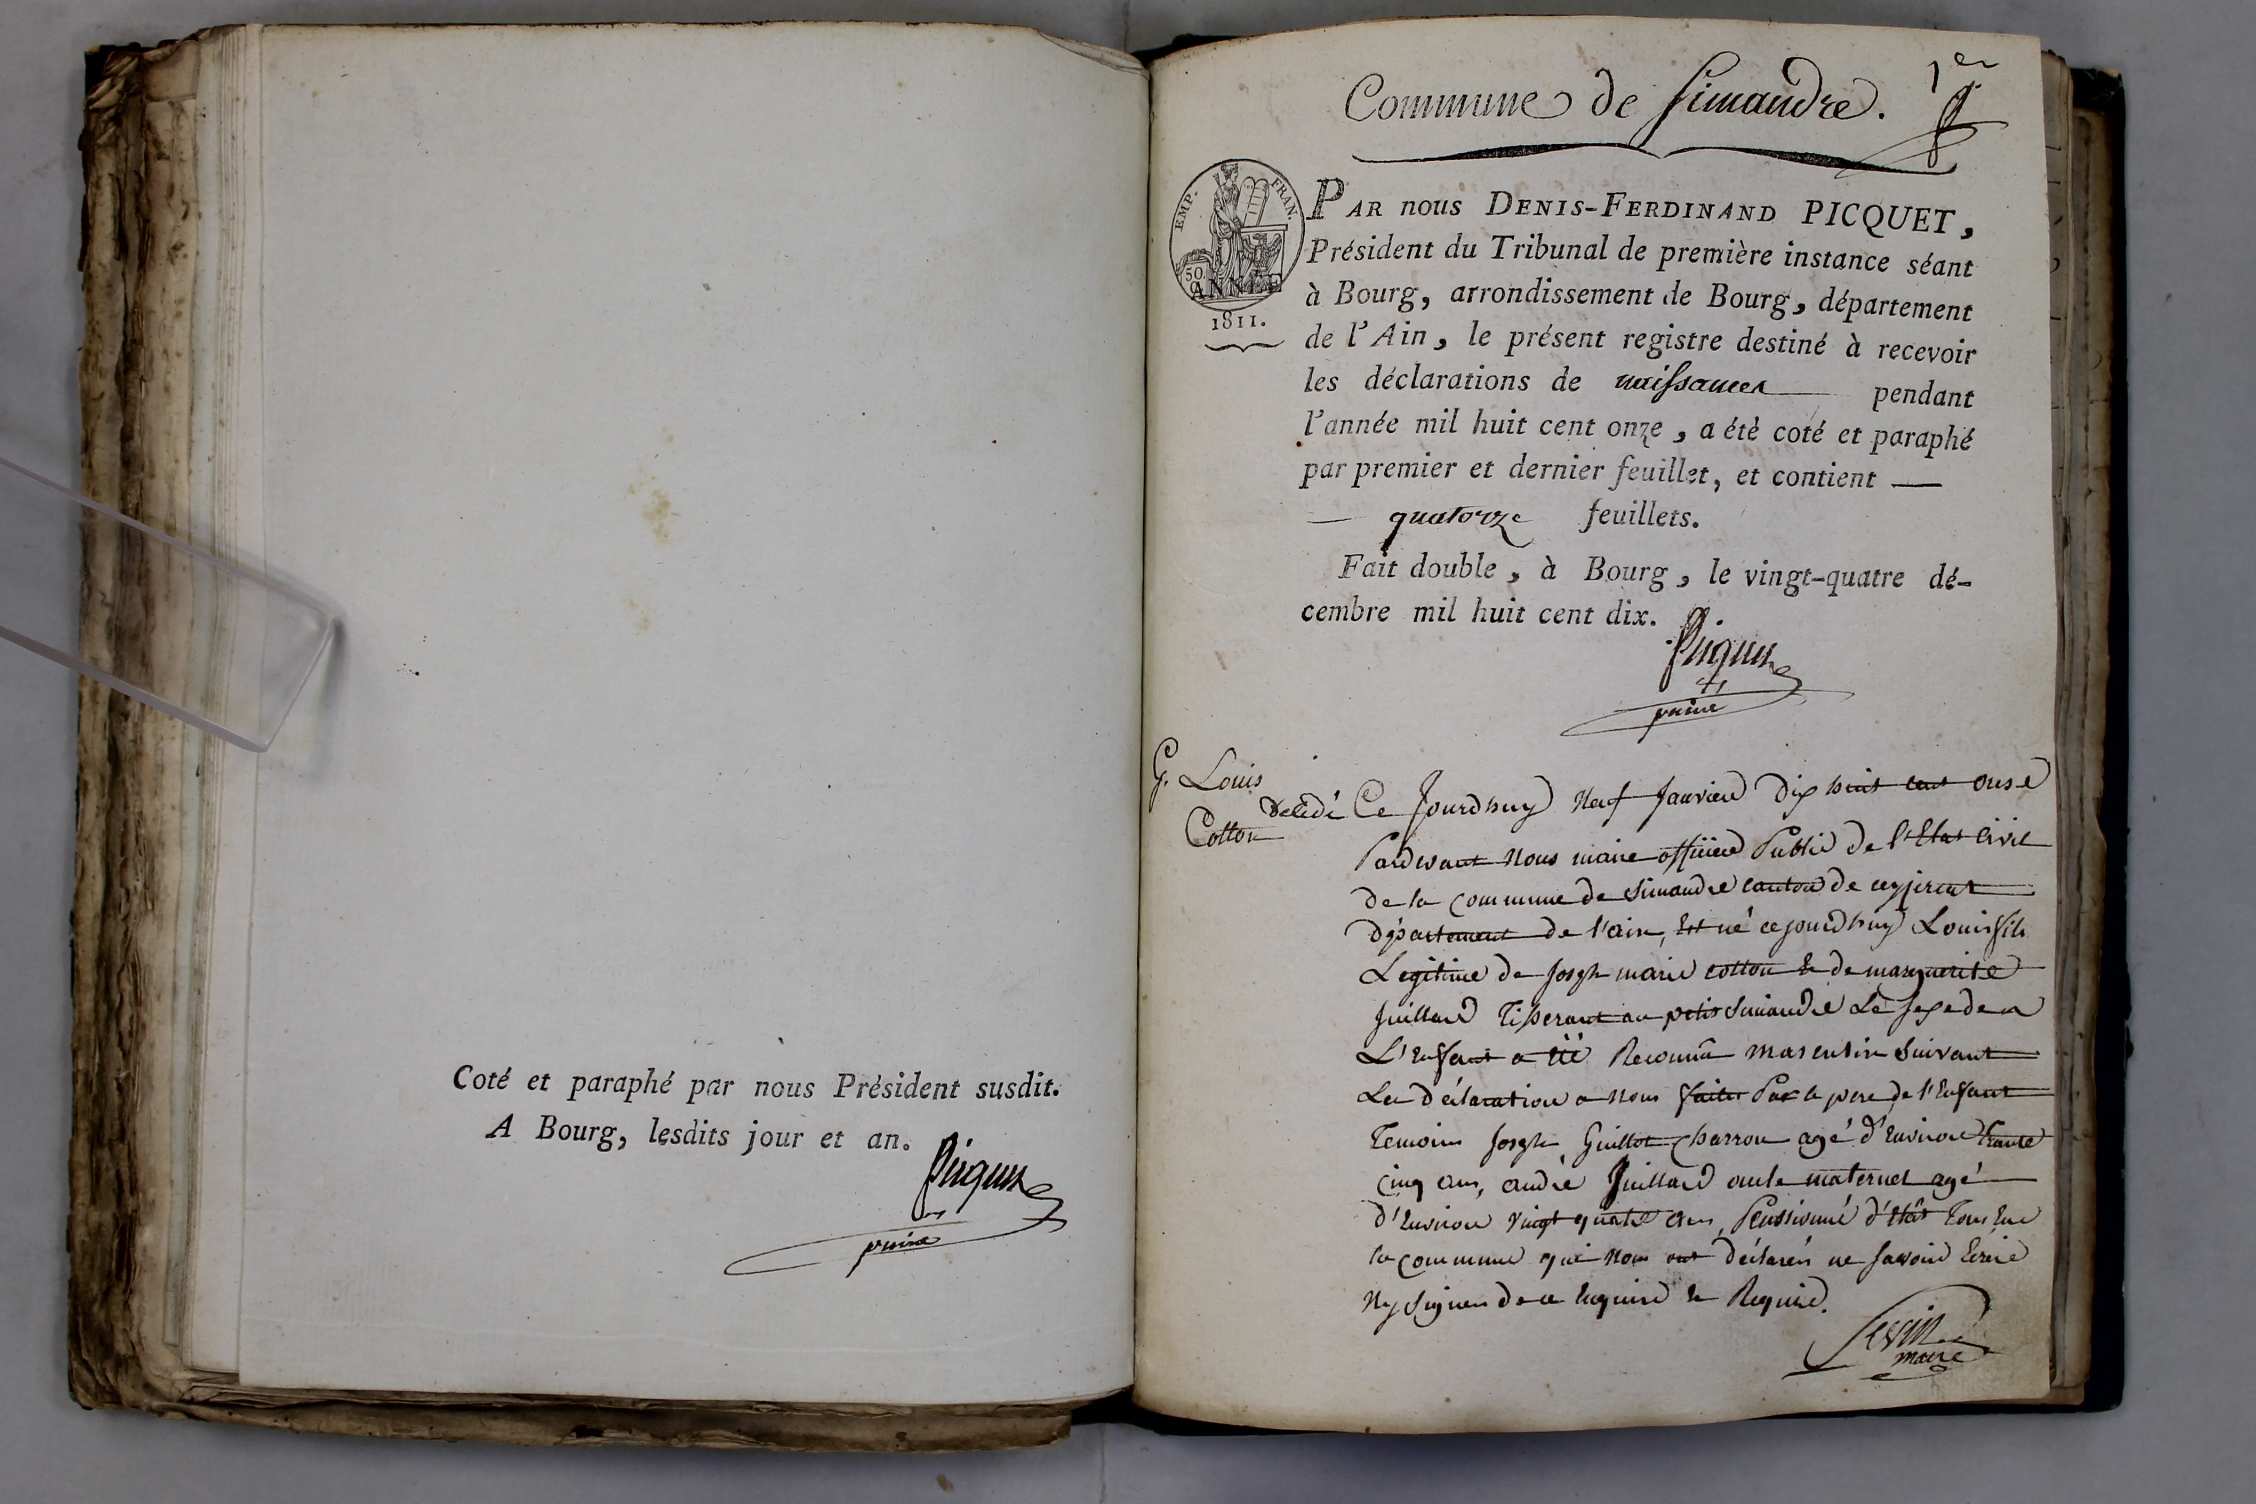 Coté et paraphé par nous Président susdit.
A Bourg, lesdits jour et an.
Picquet
Commune de Simandre.
1er
EMP. FRAN.
50
ANNÉE
1811.
PAR nous DENIS-FERDINAND PICQUET,
Président du Tribunal de première instance séant
à Bourg, arrondissement de Bourg, département
de l'Ain, le présent registre destiné à recevoir
les déclarations de naissances pendant
l'année mil huit cent onze, a été coté et paraphé
par premier et dernier feuillet, et contient —
— quatorze feuillets.
Fait double, à Bourg, le vingt-quatre dé-
cembre mil huit cent dix.
Picquet
G. Louis
Cotton
décédé
Ce Jourdhuy Neuf Janvier dix huit cent onse
Pardevant Nous maire officier Public de l'Etat Civil
de la Commune de Simandre canton de ceyzeriat
département de l'ain, Est né cejourdhuy Louis fils
Legitime de Joseph marie cotton Et de marguerite
Juillard Tisserant au petit Simandre Le sexe de
L'Enfant a Eté Reconnu masculin Suivant
La déclaration a nous faite Par le pere de l'Enfant
Temoins Joseph Guillot Charron agé d'Environ trante
Cinq ans, andré Juillard oncle maternel agé
d'Environ vingt quatre ans, Penssionné d'Etat Tous En
la commune qui nous ont déclarés ne savoir Ecrire
Ny signer de ce Enquire Et Require.
maire